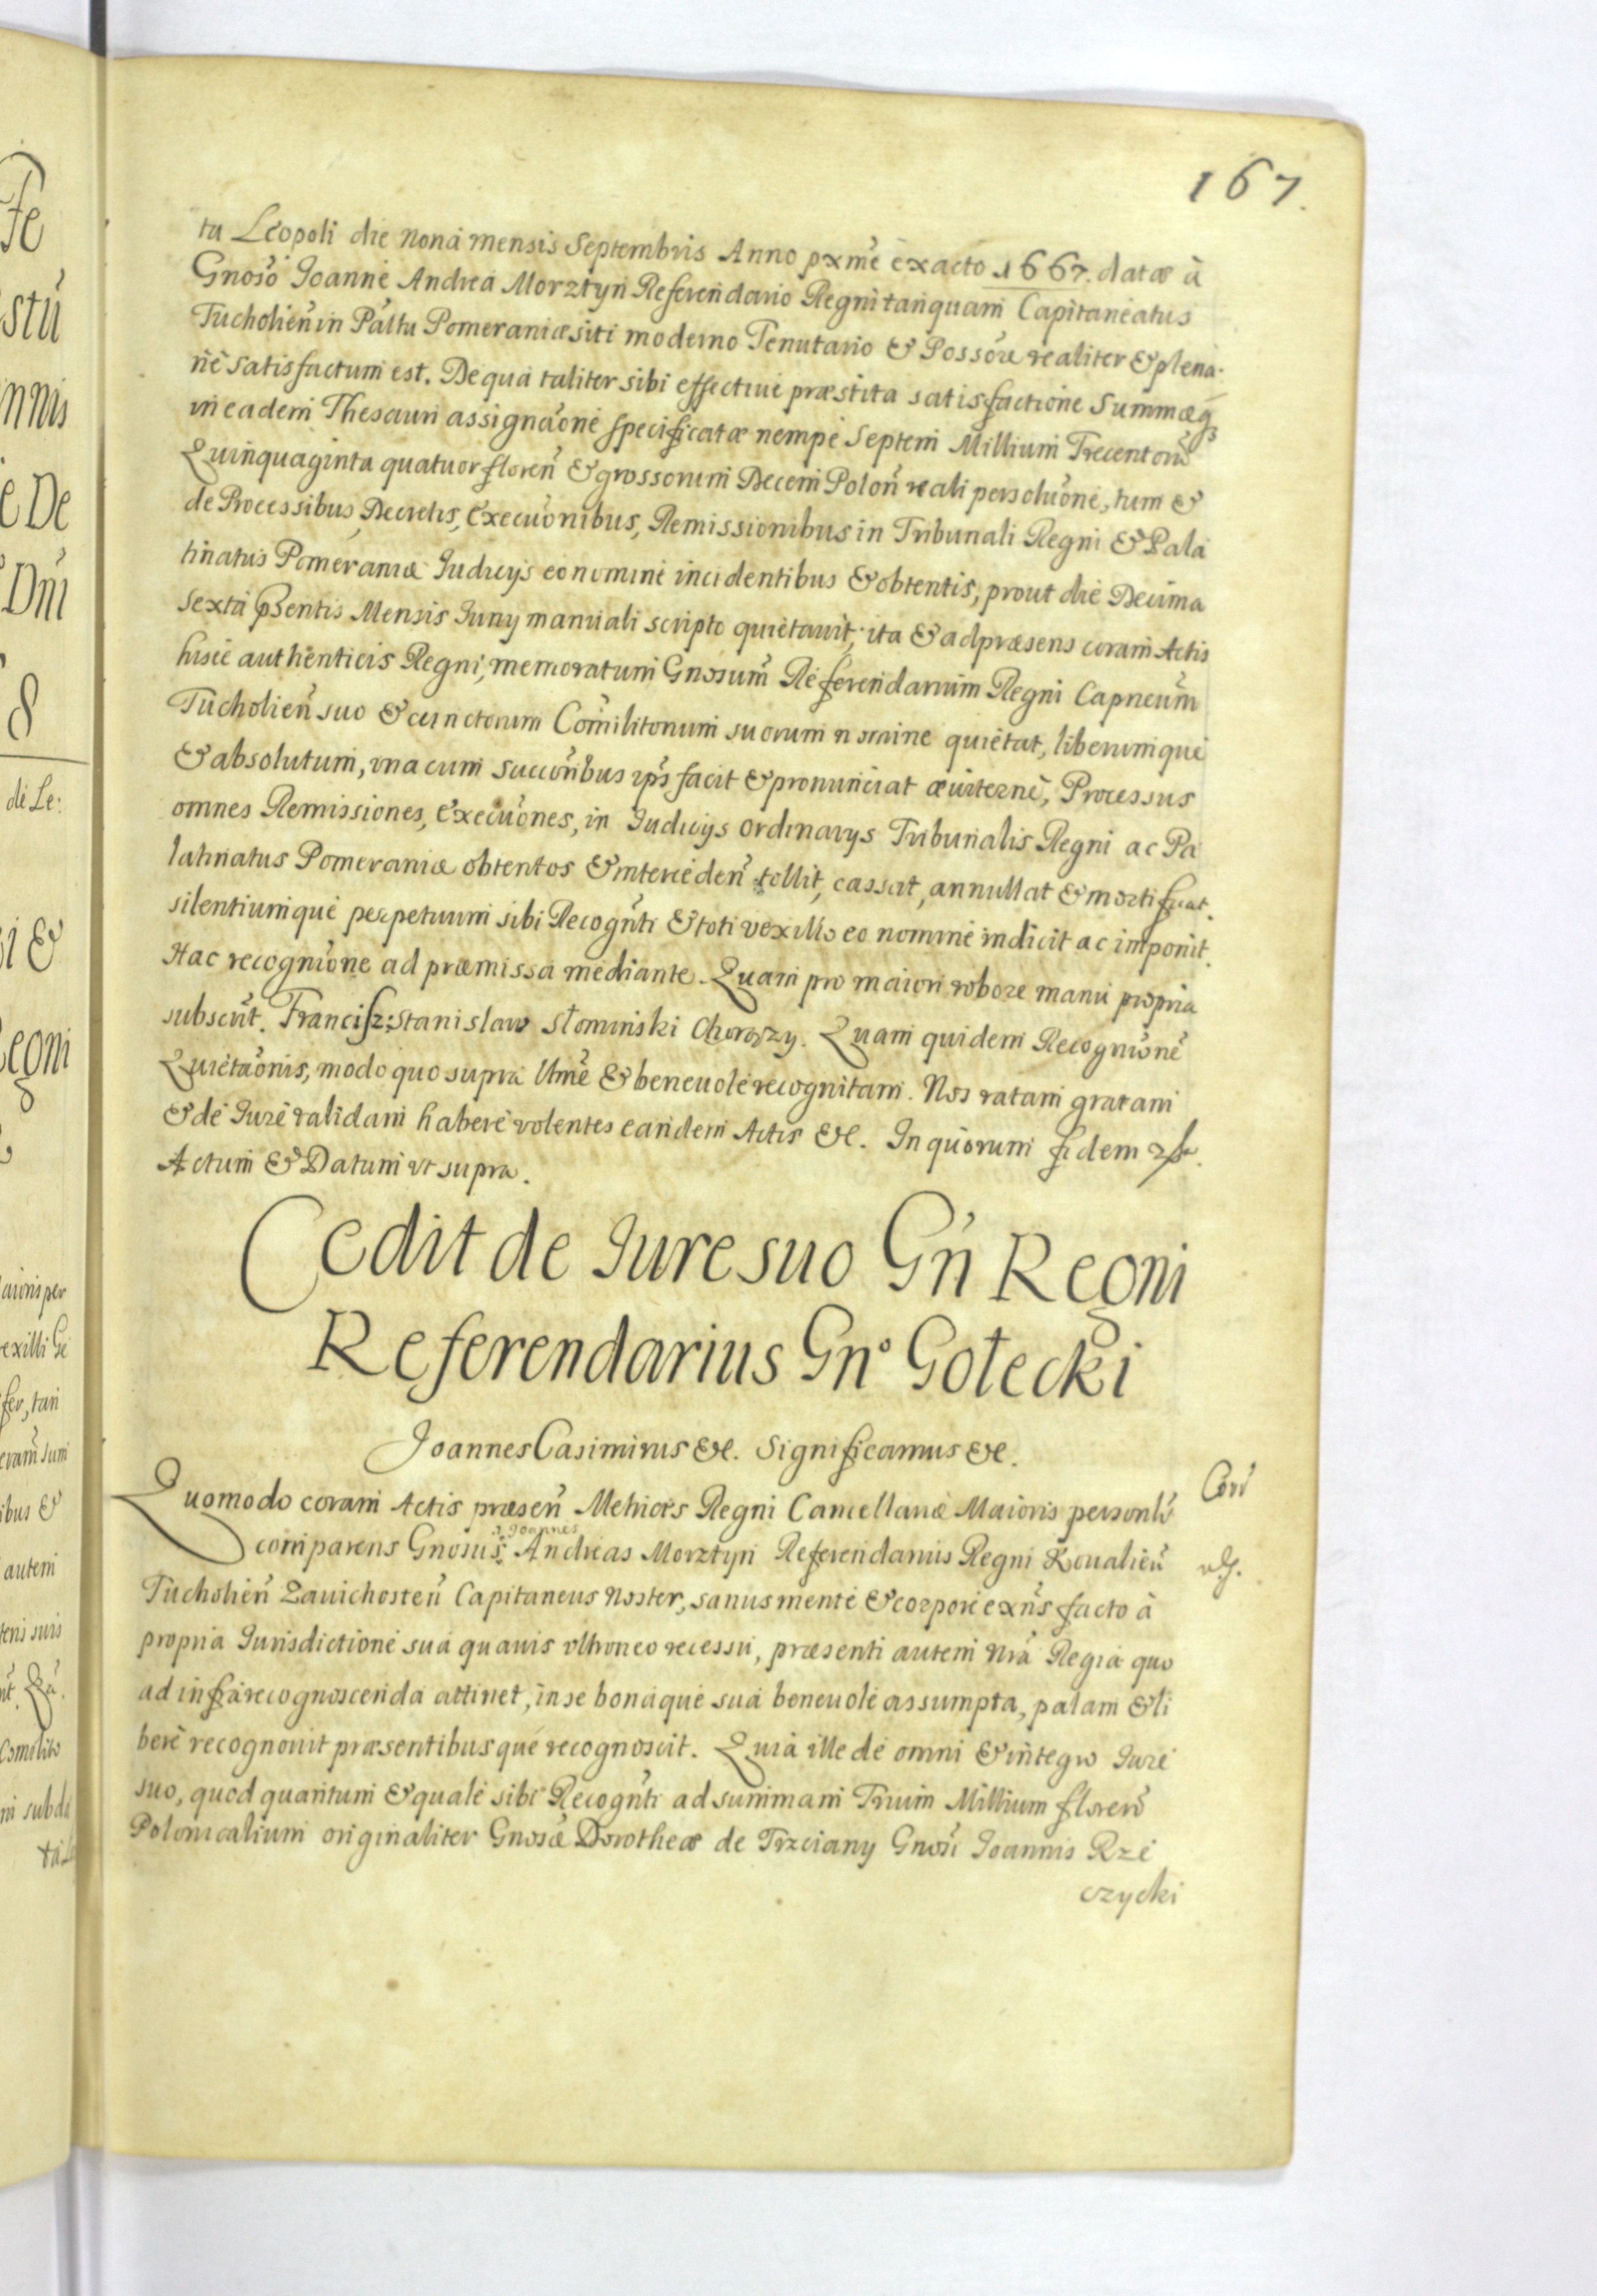 167.
ta Leopoli die nonâ mensis Septembris Anno pxmè exacto 1667. datæ à
Gnoso Joanne Andrea Morztyn Referendario Regni tanquam Capitaneatus
Tucholien̄ in Paltu Pomeraniæ siti moderno Tenutario & Possore realiter & plena
riè satisfactum est. De quâ taliter sibi effectiuè præstita satisfactione Summæq;
in eadem Thesauri assignaōne specificatæ nempe Septem Millium Trecentorū
Quinquaginta quatuor floren̄ & grossorum Decem Polon̄ reali persoluōne, tum &
de Processibus, Decretis, Execuōnibus, Remissionibus in Tribunali Regni & Pala
tinatus Pomeraniæ Iudicijs eo nomine incidentibus & obtentis, prout die Decima
sextâ p̄sentis Mensis Iuny manuali scripto quietauit; ita & ad præsens coram Actis
hisce authenticis Regni, memoratum Gnosum Referendarium Regni Capneum
Tucholien̄ suo & cunctorum Com̄ilitonum suorum nomine quietat, liberumque
& absolutum, vna cum succoribus ip̄s facit & pronunciat æuiternè, Processus
omnes Remissiones, Execuōnes, in Iudicijs Ordinarys Tribunalis Regni ac Pa
latinatus Pomeraniæ obtentos & interceden̄ tollit, cassat, annullat & mortificat.
silentiumque perpetuum sibi Recogn̄ti & toti vexillo eo nomine indicit ac imponit.
Hac recogniōne ad præmissa mediante. Quam pro maiori robore manu propria
subscr̄t. Francisz: Stanislaw Słominski Chorązy. Quam quidem Recogniōnē
Quietaōnis, modo quo supra Utm̄e & beneuole recognitam. Nos ratam gratam
& de Iure validam habere volentes eandem Actis &c. In quorum fidem &c.
Actum & Datum vt supra.
Cedit de Iure suo Gn̄ Regni
Referendarius Gn° Gołecki
Joannes Casimirus &c. Significamus &c.
Quomodo coram Actis præsen̄ Metrices Regni Cancellariæ Maioris personlr̄
Joannes
comparens Gnosus Andreas Morztyn Referendarius Regni Koualien̄
Tucholien̄ Zauichosten̄ Capitaneus Noster, sanus mente & corpore exn̄s facto à
propria Iurisdictione suâ quauis vltroneo recessu, præsenti autem Nrā Regia quo
ad infra recognoscenda attinet, in se bonaque sua beneuole assumpta, palam & li
berè recognouit præsentibusque recognoscit. Quia ille de omni & integro Iure
suo, quod quantum & quale sibi Recogn̄ti ad summam Trium Millium floren̄
Polonicalium originaliter Gnosæ Dorotheæ de Trzciany Gnosi Joannis Rze
czycki